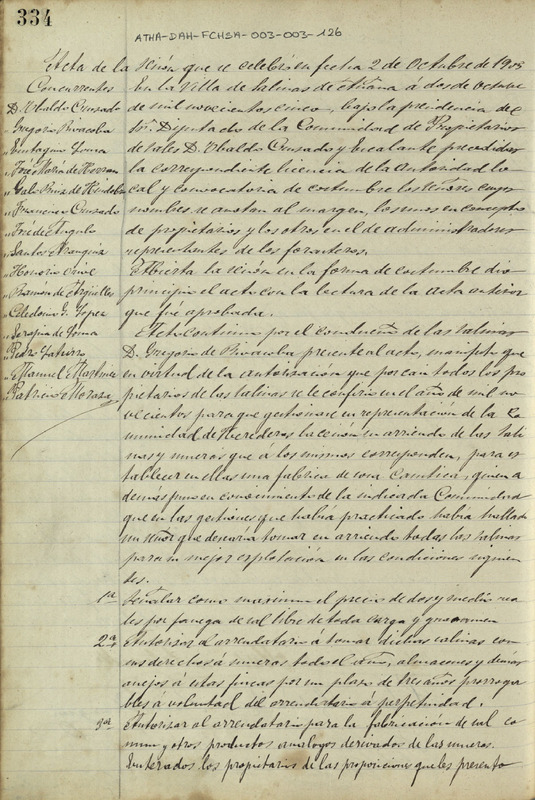 334
ATHA-DAH-FCHSA-003-003-126
Acta de la sesión que se celebró en fecha 2 de Octubre de 1905
Concurrentes
D. Ubaldo Cruzado
Gregorio Ruvacoba
" Eustaquio Yoma
" José María de Herran
" Galo Ruiz de
" Francisco Cruzado
" José de Angulo
" Santos Aranguiz
" Honorio
" Ramón de Argüelles
" Celedonio G. López
" Serapio de Yoma
" Pedro
" Manuel Martinez
" Patricio Moraza
En la Villa de Salinas de Añana á dos de octubre
de mil novecientos cinco, bajo la presidencia del
Sor. Diputado de la Comunidad de Propietarios
de sales D. Ubaldo Cruzado y Escalante precedida
la correspondiente licencia de la Autoridad lo
cal y convocatoria de costumbre los señores cuyos
nombres se anotan al margen, los unos en concepto
de propietarios y los otros en el de administradores
representantes de los forasteros.
Abierta la sesión en la forma de costumbre dio
principio el acto con la lectura de la acta anterior
que fué aprobada.
Acto continuo por el condueño de las salinas
D. Gregorio de Ruvacoba presente al acto, manifestó que
en virtud de la autorización que por casi todos los pro
pietarios de las salinas se le confirió en el año de mil no
vecientos para que gestionase en representación de la Co
munidad de Herederos la cesión en arriendo de las sali
nas y mueras que á los mismos corresponden, para es
tablecer en ellas una fabrica de sosa caustica, quien a
demás puso en conocimiento de la indicada Comunidad
que en las gestiones que había practicado había hallado
un señor que desearia tomar en arriendo todas las salinas
para su mejor explotación en las condiciones siguien
tes.
1a Señalar como maximum el precio de dos y medio rea
les por fanega de sal libre de toda carga y gravamen
2a Autorizar al arrendatario á tomar dichas salinas con
sus derechos á mueras todo el año, almacenes y demás
anejos á estas fincas por un plazo de tres años prorroga
bles a voluntad del arrendatario á perpetuidad.
3a Autorizar al arrendatario para la fabricación de sal co
mun y otros productos analogos derivados de las mueras.
Enterados los propietarios de las proposiciones que les presentó